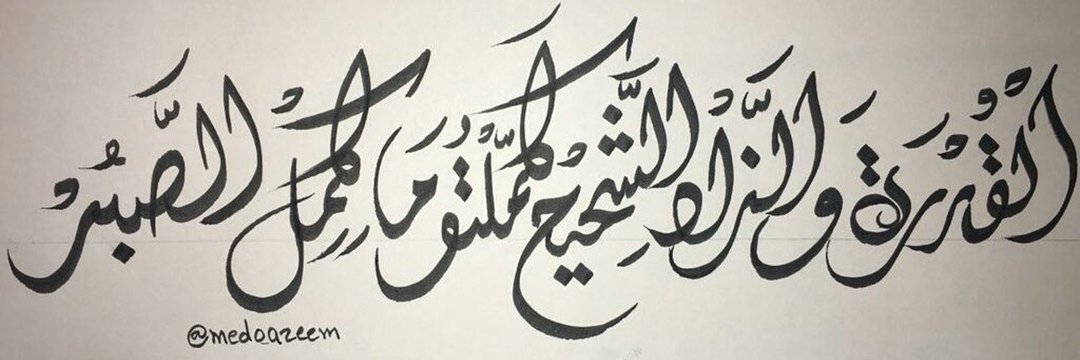 الْقُدْرَة وَالزَّادْ الشَّحِيحْ كَمَّلْتُو مَا كِمِلْ الصَّبُرْ
@medo_azeem